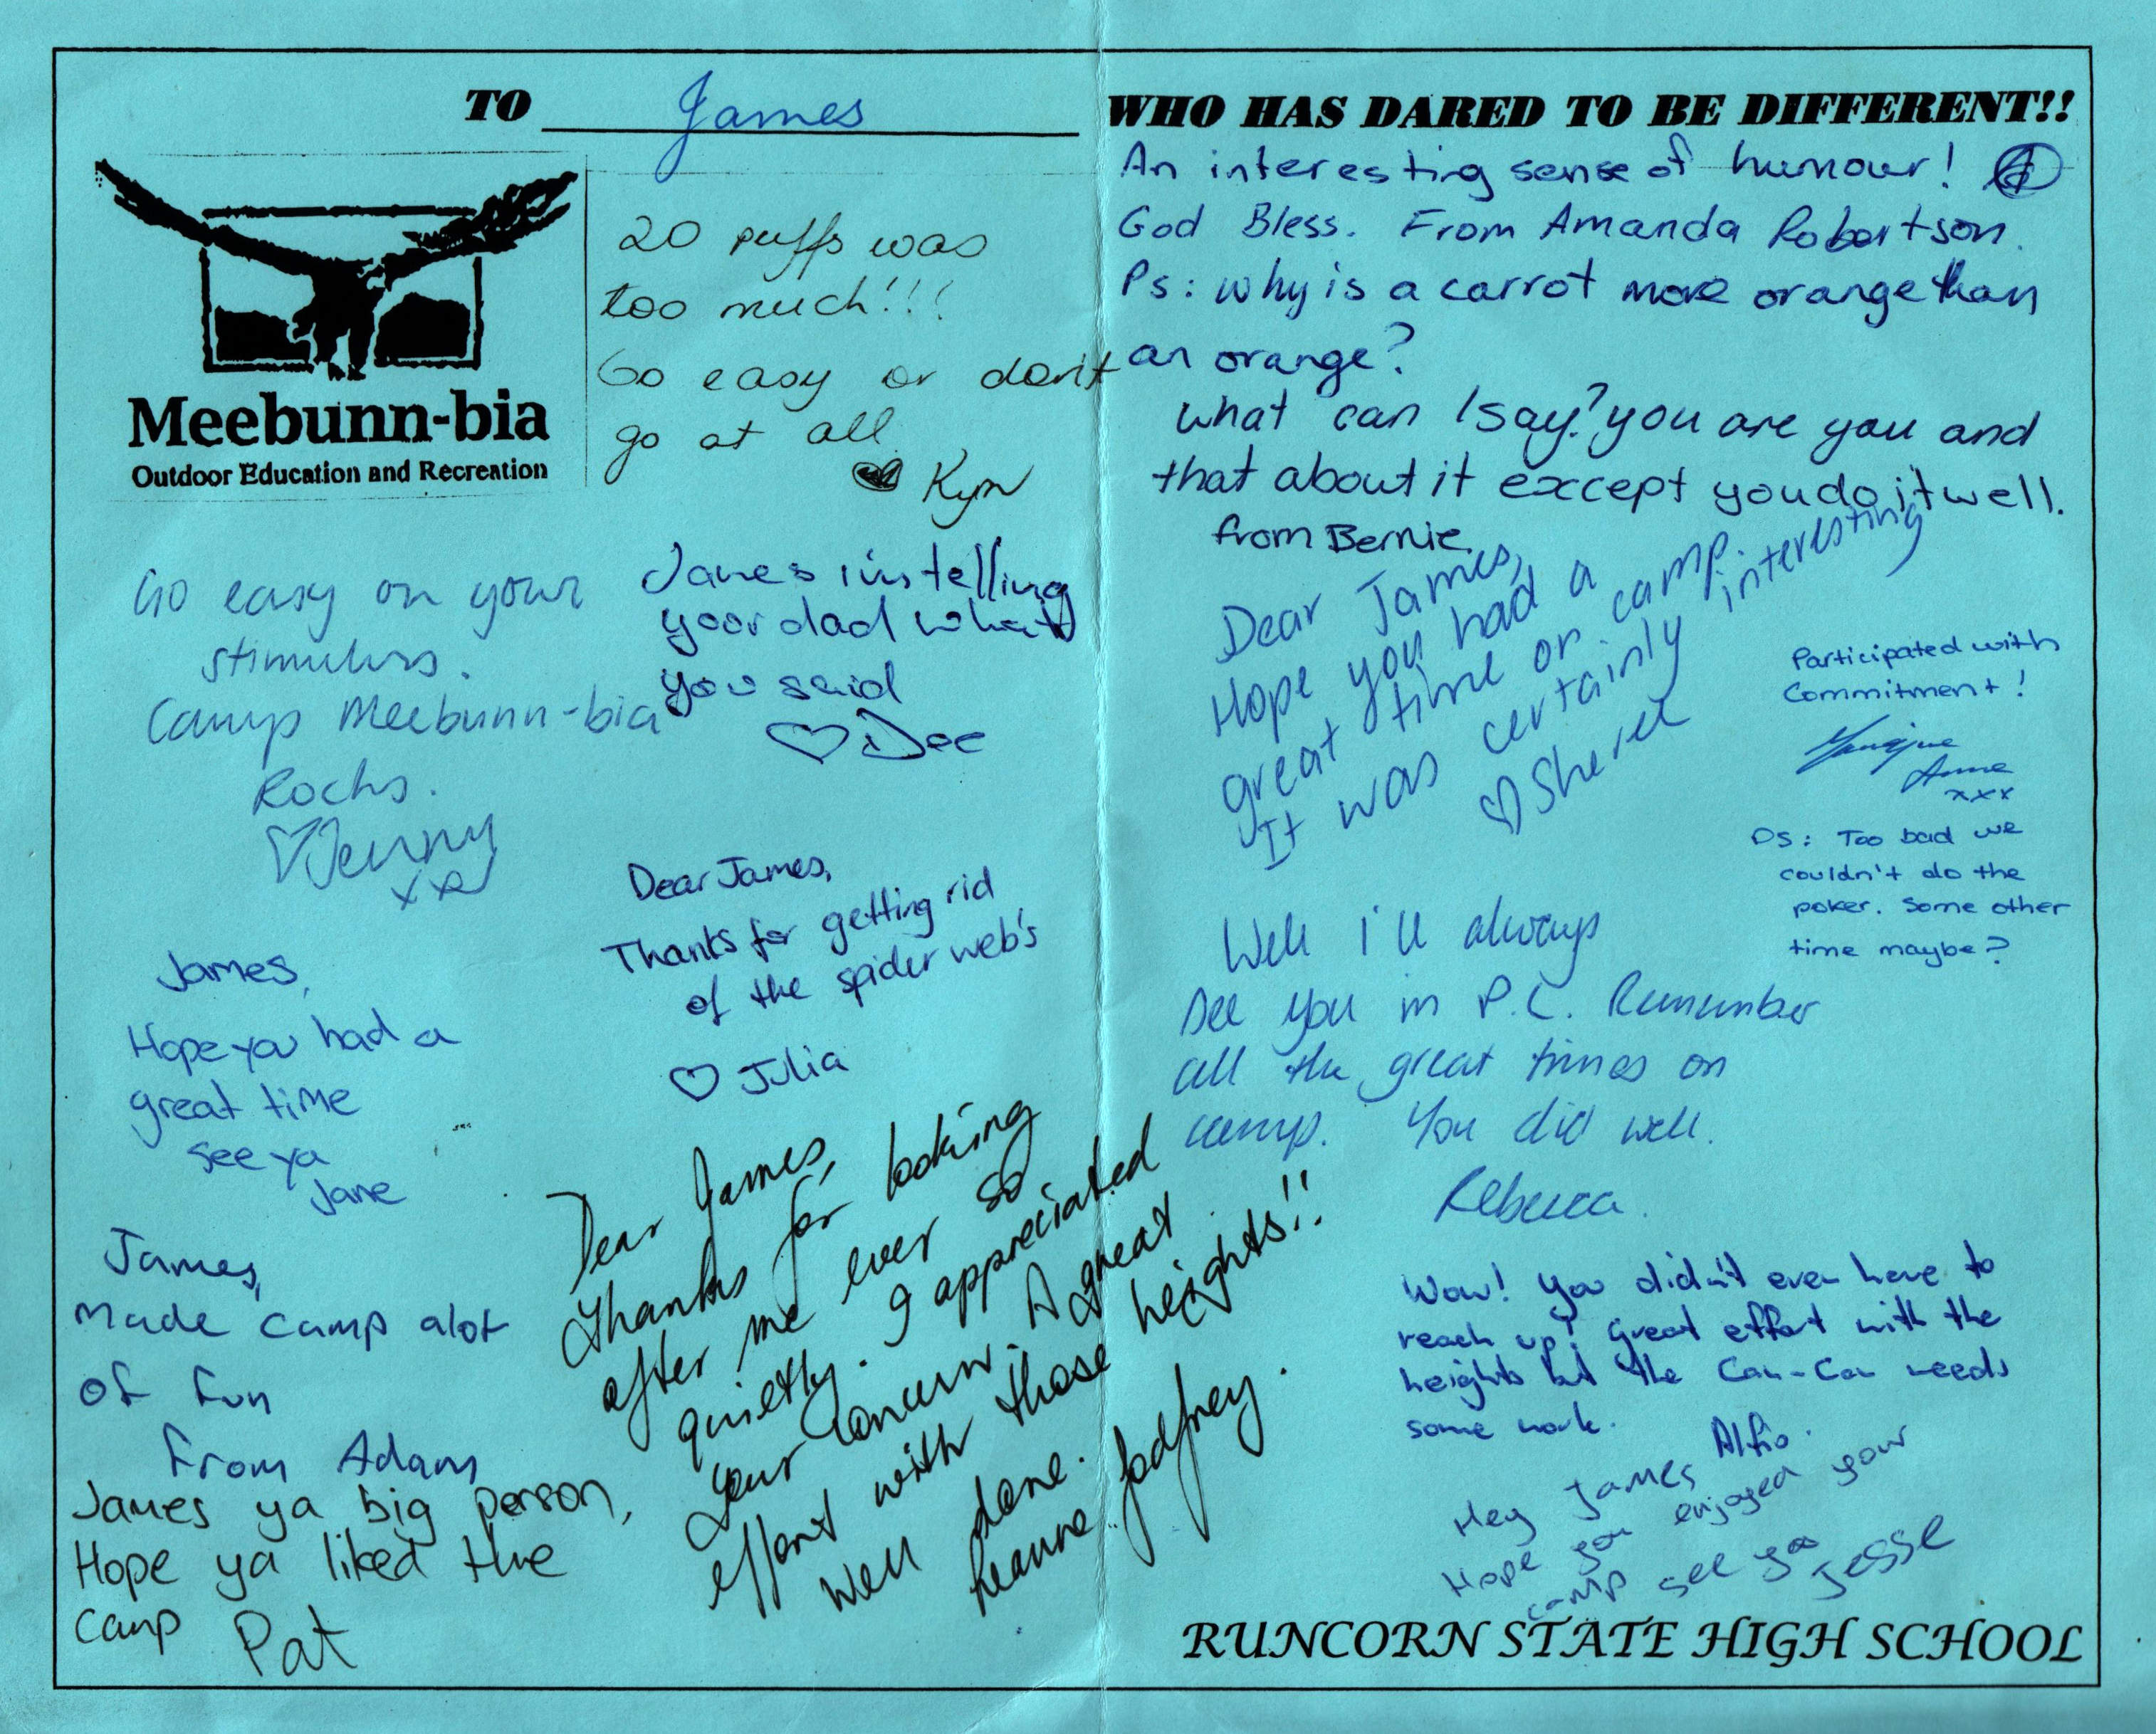 TO James WHO HAS DARED TO BE DIFFERENT!!
Meebunn-bia
Outdoor Education and Recreation
20 puffs was
too much!!!
Go easy or don't
go at all
Kym
An interesting sense of humour!
God Bless. From Amanda Robertson.
Ps: why is a carrot more orange than
an orange?
what can I say? you are you and
that about it except you do it well.
from Bernie.
Go easy on your
stimulus.
Camp Meebunn-bia
Rocks.
Jenny
xx
James im telling
your dad what
you said
Dee
Dear James,
Hope you had a
great time on camp.
It was certainly interesting
Sheree
Participated with
Commitment!
Anne
xxx
PS: Too bad we
couldn't do the
poker. Some other
time maybe?
Dear James,
Thanks for getting rid
of the spider web's
Julia
James,
Hope you had a
great time
see ya
Jane
Well i'll always
see you in P.C. Remember
all the great times on
camp. You did well.
Rebecca.
James,
Made camp alot
of fun
from Adam
James ya big person,
Hope ya liked the
camp
Pat
Dear James,
Thanks for looking
after me ever so
quietly. I appreciated
your concern. A great
effort with those heights!!
Well done.
Leanne Godfrey.
Wow! You didn't even have to
reach up! Great effort with the
heights but the Can-Can needs
some work.
Alfio.
Hey James
Hope you enjoyed your
camp see ya
Jesse
RUNCORN STATE HIGH SCHOOL